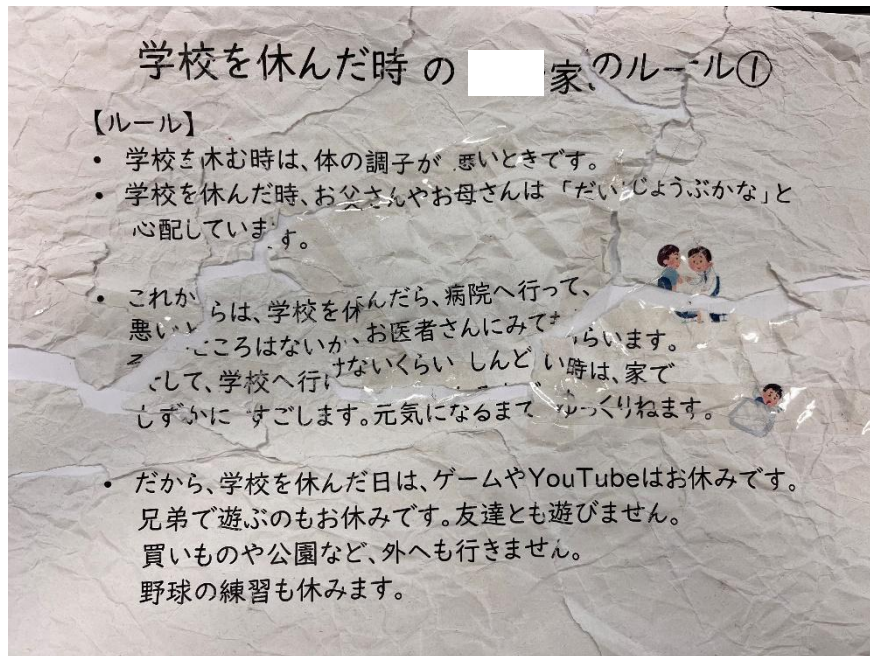 学校を休んだ時の 家のルール①
【ルール】
• 学校を休む時は、体の調子が悪いときです。
• 学校を休んだ時、お父さんやお母さんは「だいじょうぶかな」と
心配しています。
• これからは、学校を休んだら、病院へ行って、
悪いところはないか、お医者さんにみてもらいます。
そして、学校へ行けないくらいしんどい時は、家で
しずかにすごします。元気になるまでゆっくりねます。
• だから、学校を休んだ日は、ゲームやYouTubeはお休みです。
兄弟で遊ぶのもお休みです。友達とも遊びません。
買いものや公園など、外へも行きません。
野球の練習も休みます。